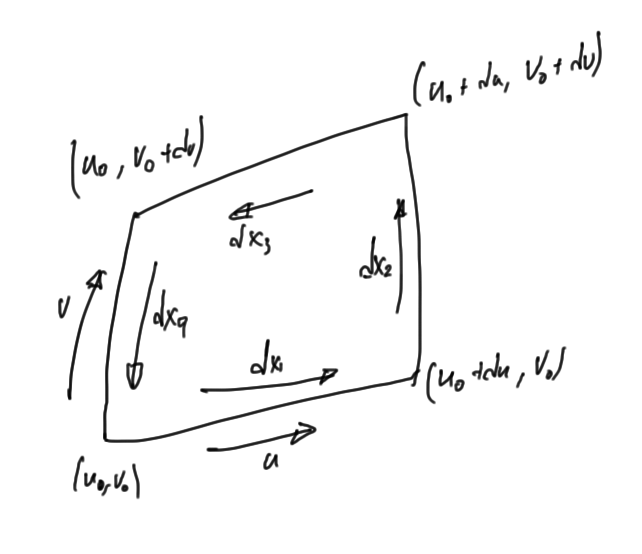 (u₀ + du, v₀ + dv)
(u₀, v₀ + dv)
dx₃
dx₂
v
dx₄
dx₁
(u₀ + du, v₀)
u
(u₀, v₀)